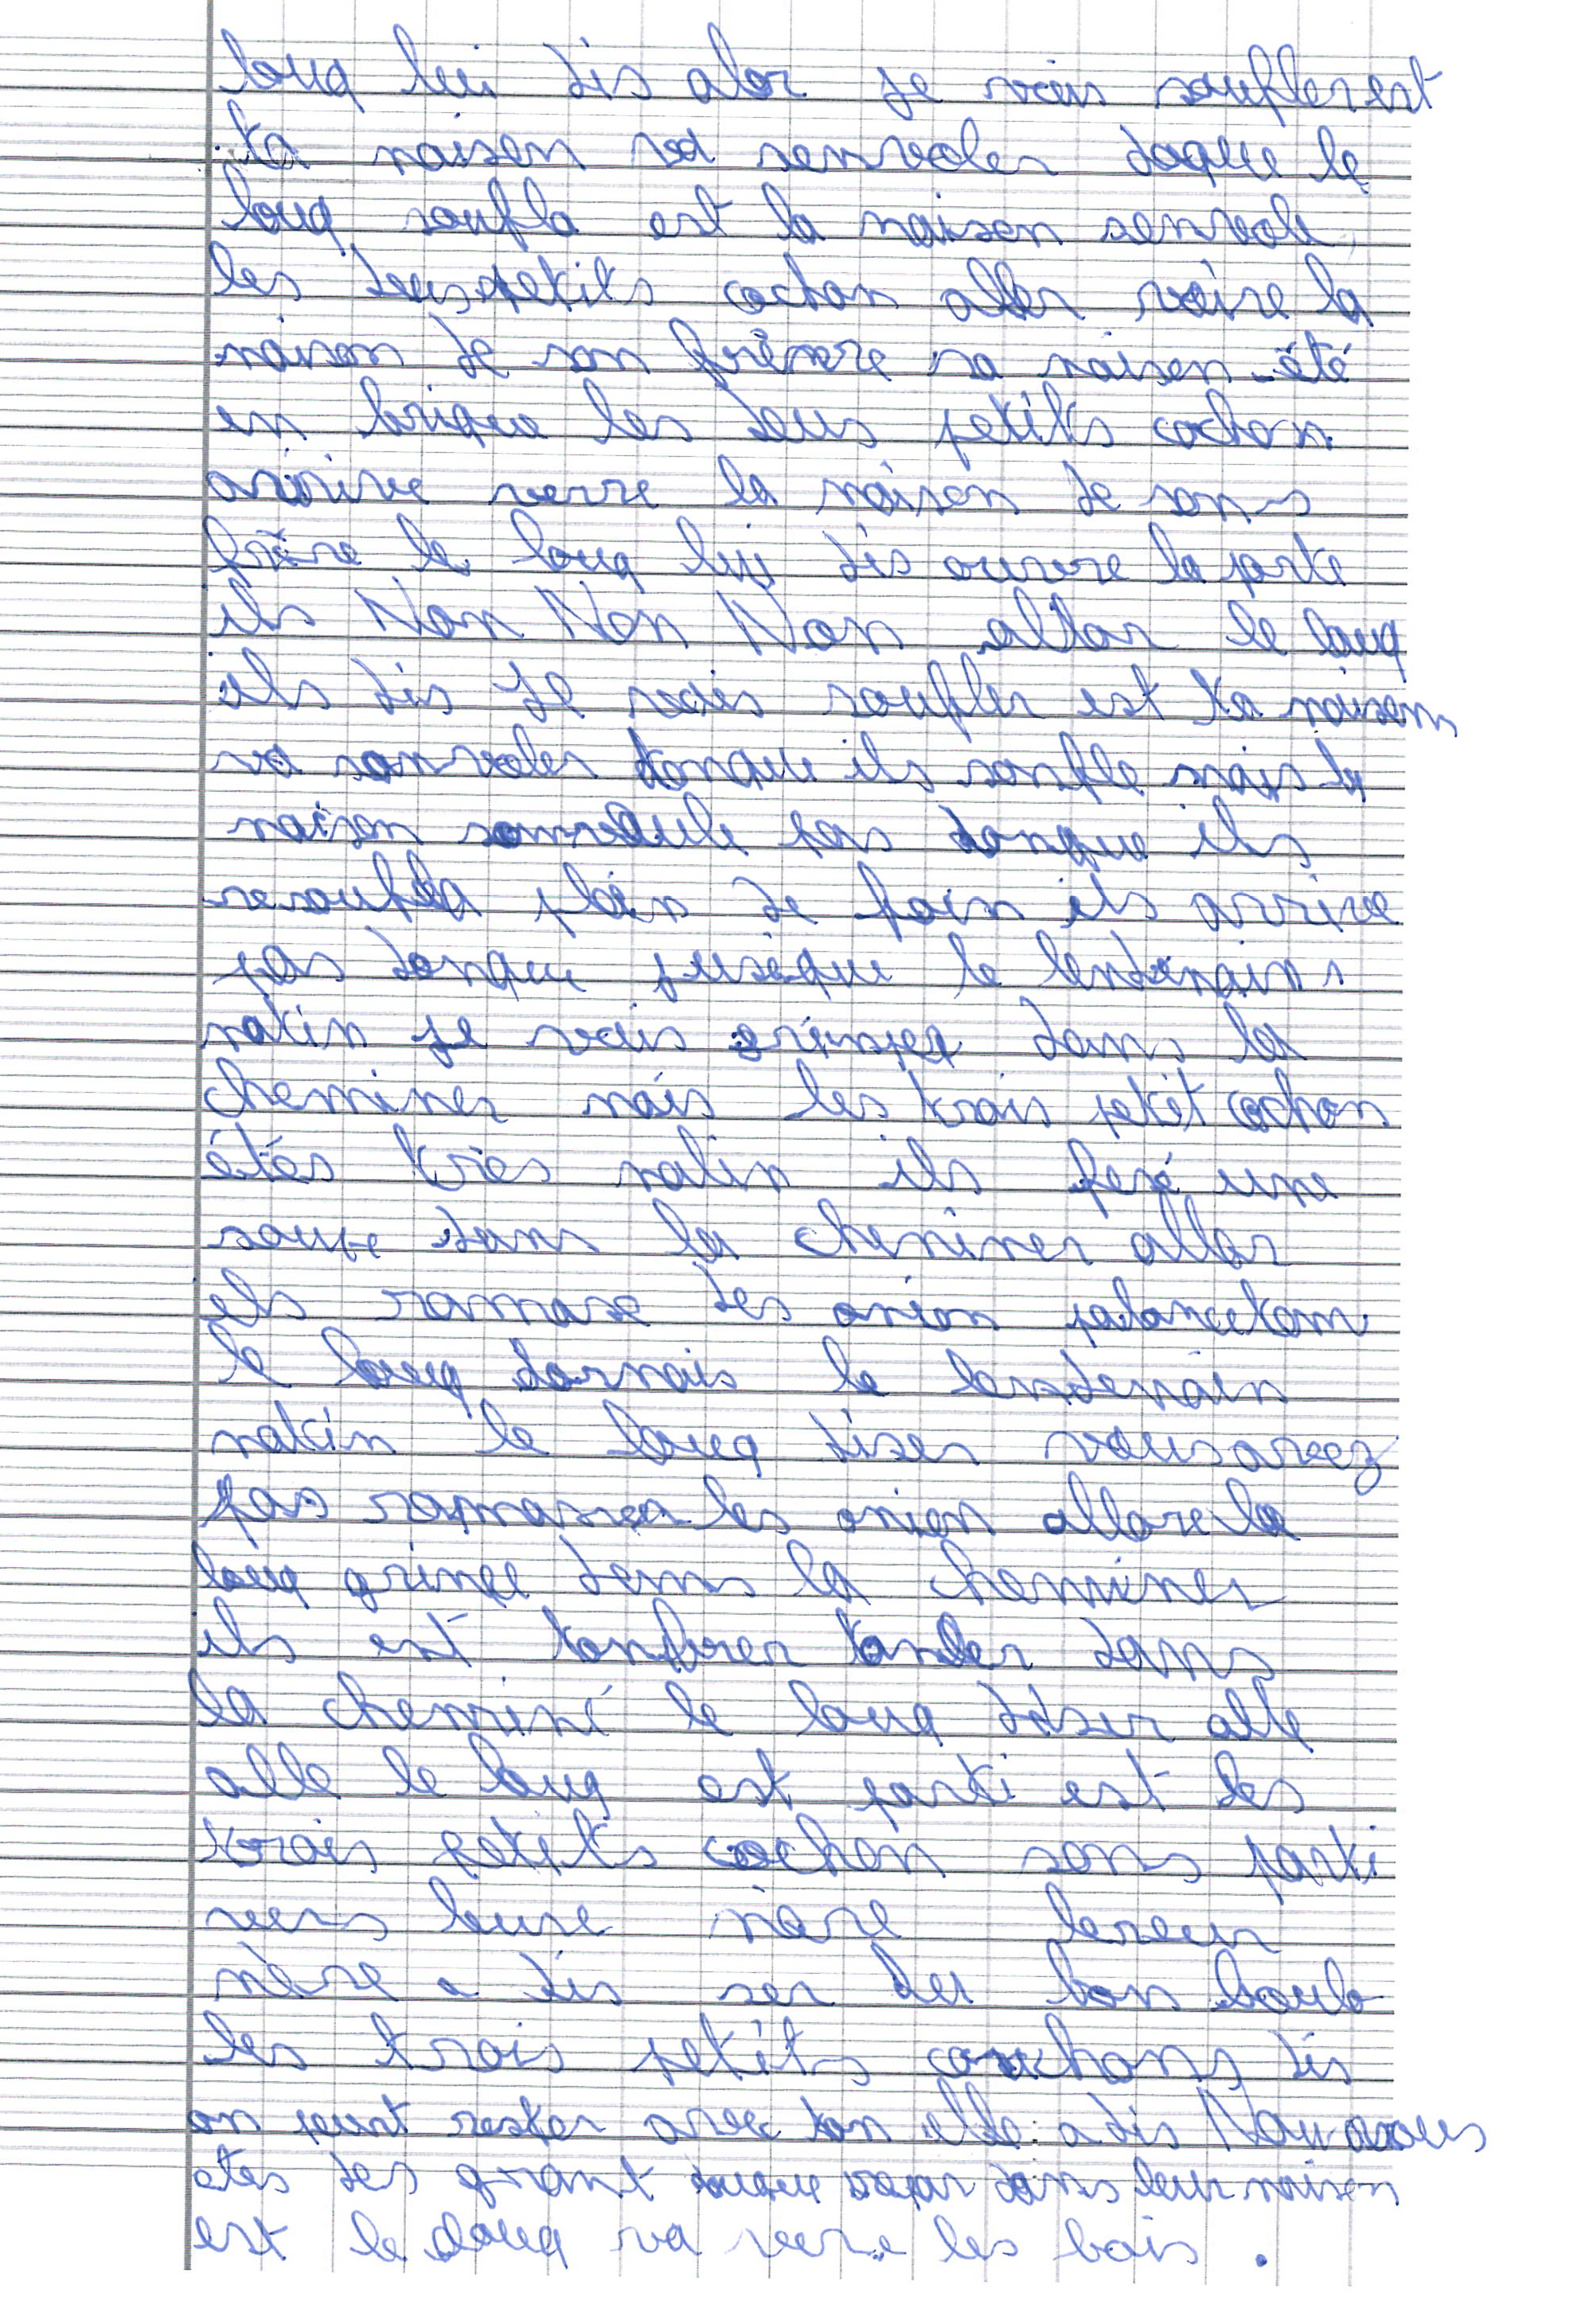 louq lui dis alor je vais souflerest
ta maison va senvoler doque le
louq soufla est la maison senvole
les deuspetits cochon aller voire la
maison de son frère sa maison été
en brique les deus petits cochon
arrive verre la maison de son
frère le louq lui dis ouvre la porte
ils Non Non Non allor le louq
ils dis je vais soufler est ta maison
va sonvoler donque ils soufle mais la
maison sonvole pas donque ils
resoufla plein de foin ils arrive
pas donque jusque le lendemain
matin je vais grimper dans la
cheminer mais les trois petit cochon
étés très malin ils feré une
soupe dans la cheminer allor
ils ramase des onion
le louq dormais le lendemain
matin le louq diser vousavez
pas ramasser les onion allore le
louq grinpe dans la cheminer
ils est tonber dans
la cheminé le louq diser alle
alle le louq est parti est les
trois petits cochon sons parti
vers leure mère
mère a dis ser du bon boulo
les trois petits cochons dis
on peut rester avec ton elle a dis Non vous
etes des grant dans leur maison
est le louq va vere les bois .